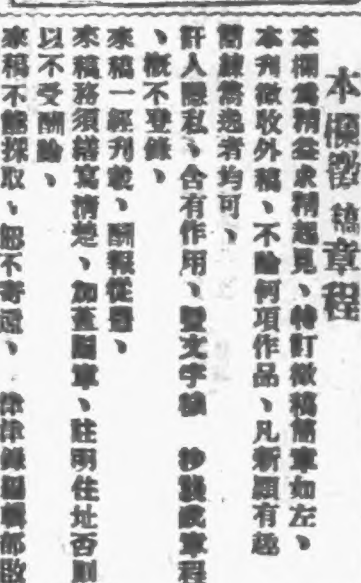 本欄徵稿章程
本欄為精益求精起見、特訂徵稿簡章如左、
本刊徵收外稿、不論何項作品、凡新穎有趣
簡練雋逸者均可、
訐人隱私、含有作用、暨文字 抄襲或
、概不登錄、
來稿一經刊載、酬報從
來稿務須繕寫清楚、加蓋圖章、註明住址否則
以不受酬論、
來稿不能採取、恕不寄還、 津津錄編輯部啟